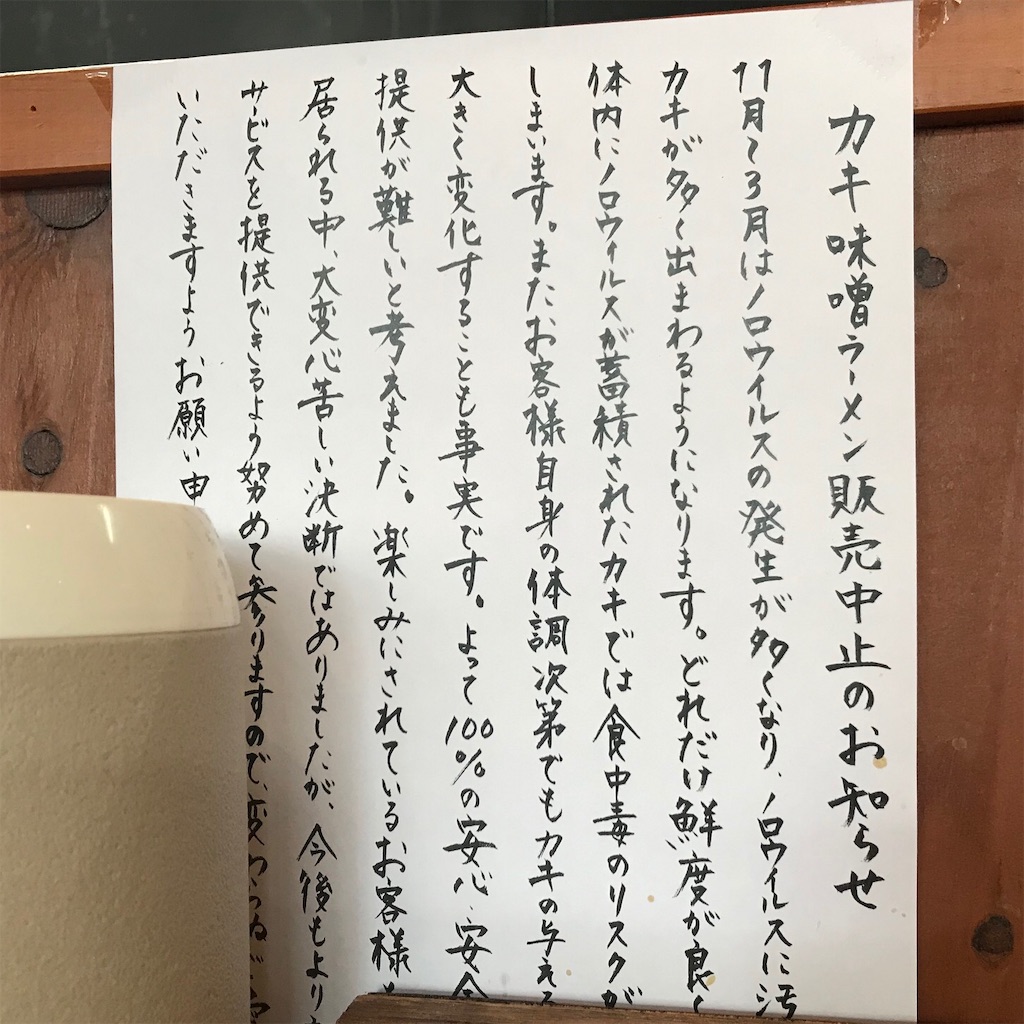 カキ味噌ラーメン販売中止のお知らせ
11月〜3月はノロウイルスの発生が多くなり、ノロウイルスに汚
カキが多く出まわるようになります。どれだけ鮮度が良く
体内にノロウィルスが蓄積されたカキでは食中毒のリスクが
しまいます。またお客様自身の体調次第でもカキの与える
大きく変化することも事実です。よって100%の安心・安全
提供が難しいと考えました。楽しみにされているお客様
居られる中、大変心苦しい決断ではありましたが、今後もより
サービスを提供できるよう努めて参りますので、変わらぬご
いただきますようお願い申